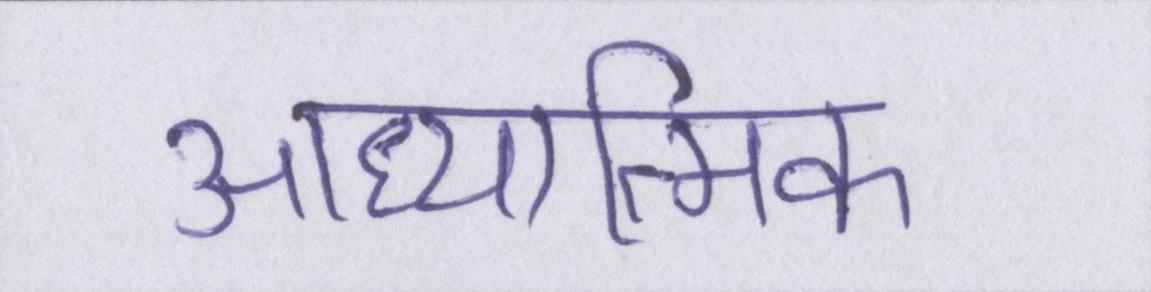 आध्यात्मिक